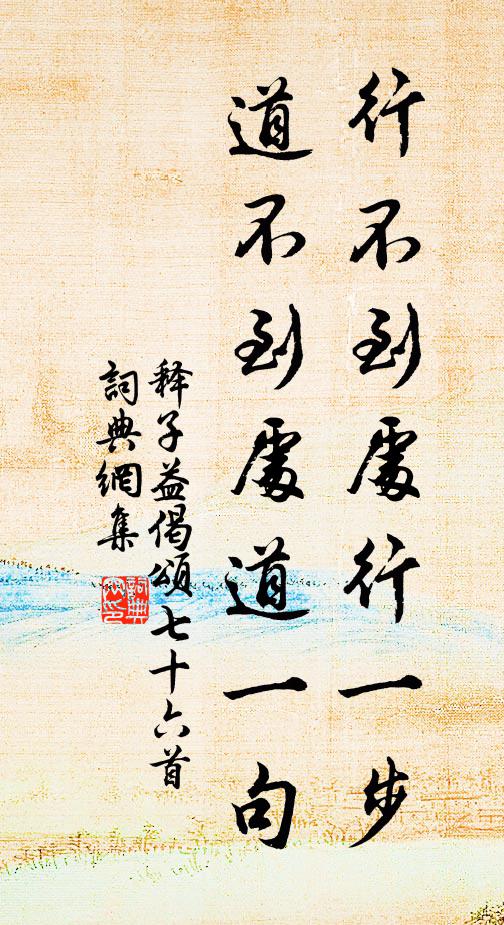 行不到處行一步
道不到處道一句
释子益偈頌七十六首
詞典網集